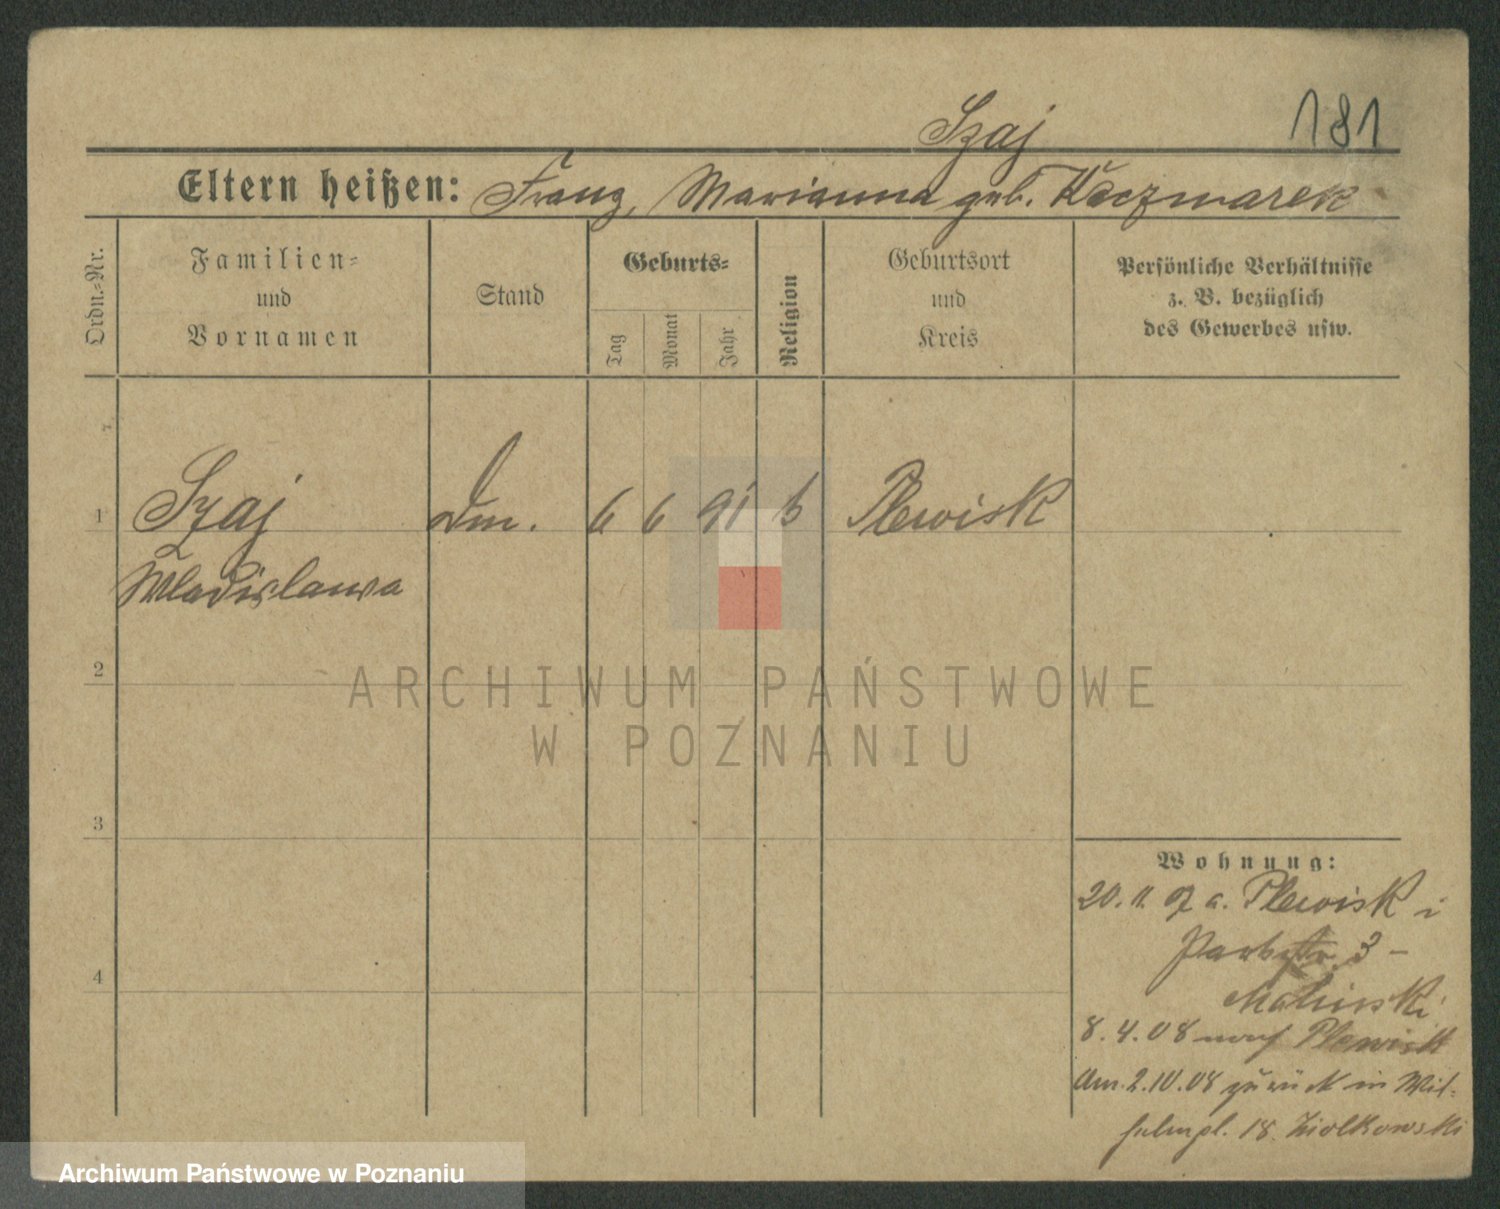 Szaj
181
Eltern heißen: Franz, Marianna geb. Kaczmarek
Ordn.-Nr.
Familien-
und
Vornamen
Stand
Geburts-
Tag
Monat
Jahr
Religion
Geburtsort
und
Kreis
Persönliche Verhältnisse
z. B. bezüglich
des Gewerbes usw.
1
Szaj
Dm.
6 6 91
Plewisk
Wladislawa
2
3
4
Wohnung:
20. 11. 07 a. Plewisk i
Parkstr. 3 -
8. 4. 08 nach Plewisk
Am. 2.10.08 zurück in Wil-
helmpl. 18. Ziolkowski
ARCHIWUM PAŃSTWOWE
W POZNANIU
Archiwum Państwowe w Poznaniu